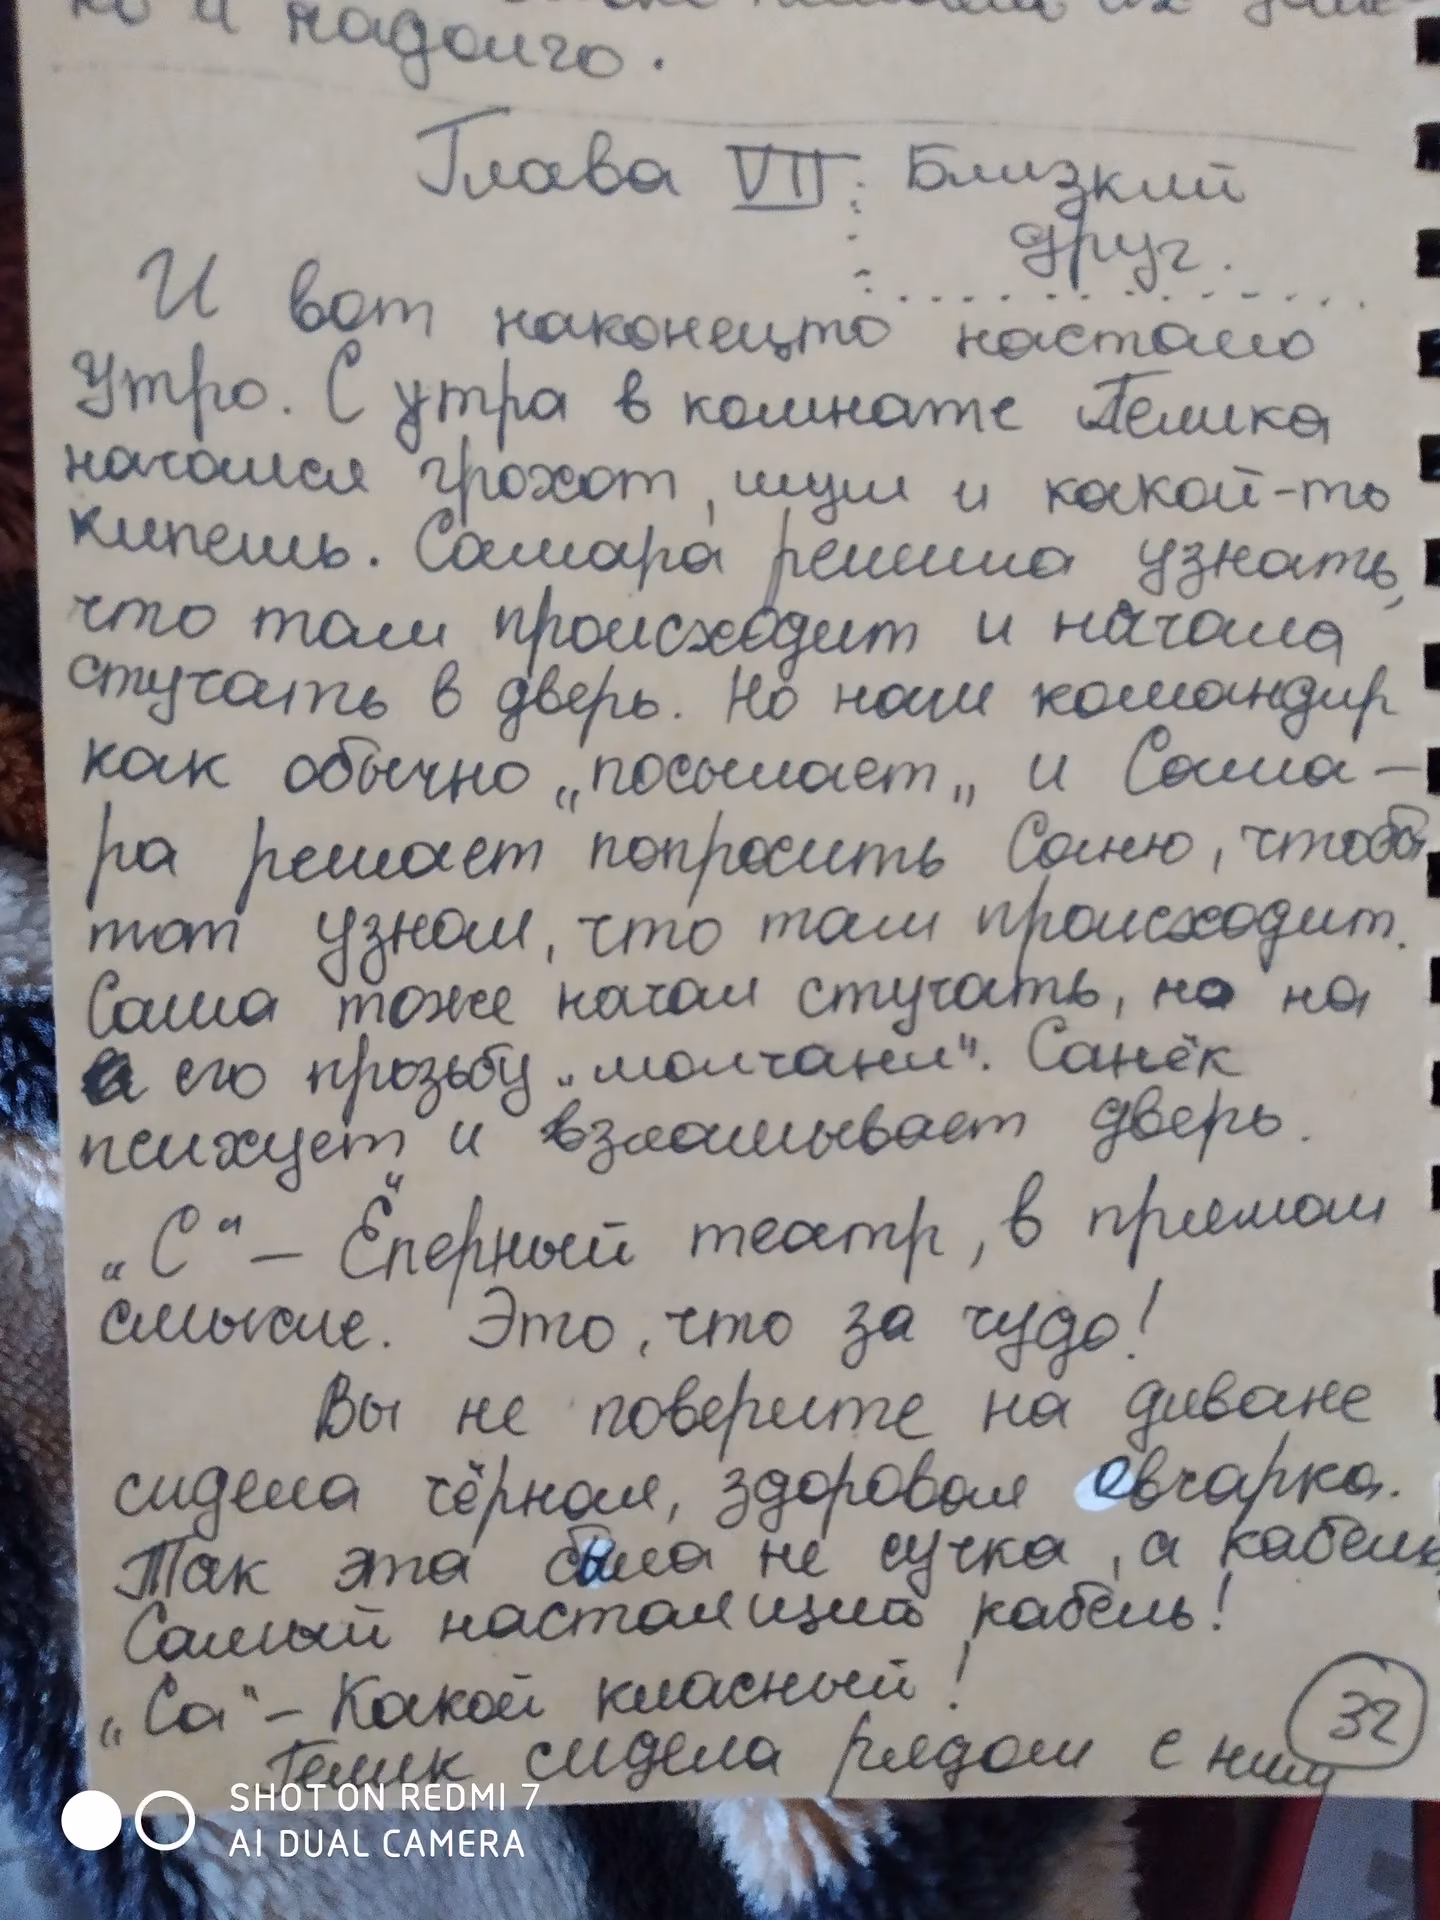 но и надолго.
Глава VII: Близкий
друг.
И вот наконецто настало
Утро. С утра в комнате Гелика
начался грохот, шум и какой-то
кипешь. Самара решила узнать,
что там происходит и начала
стучать в дверь. Но наш командир
как обычно „посылает„ и Сама-
ра решает попросить Саню, чтобы
тот узнал, что там происходит.
Саша тоже начал стучать, но на
его прозьбу „молчание". Санёк
психует и взламывает дверь.
„С" - Ёперный театр, в прямом
смысле. Это, что за чудо!
Вы не поверите на диване
сидела чёрная, здоровая овчарка.
Так эта была не сучка, а кабель,
Самый настоящий кабель!
„Са" - Какой класный!
Гелик сидела рядом с ним
32
SHOT ON REDMI 7
AI DUAL CAMERA